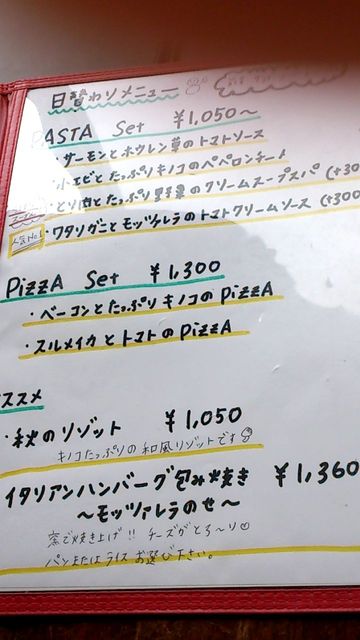 日替わりメニュー
PASTA Set ¥1,050〜
・サーモンとホウレン草のトマトソース
・小エビとたっぷりキノコのペペロンチーノ
・とり肉とたっぷり野菜のクリームスープスパ (+300
人気No.1 ・ワタリガニとモッツァレラのトマトクリームソース (+300
PizzA Set ¥1,300
・ベーコンとたっぷりキノコのPizzA
・スルメイカとトマトのPizzA
ススメ
・秋のリゾット ¥1,050
キノコたっぷりの和風リゾットです
イタリアンハンバーグ包み焼き ¥1,360
〜モッツァレラのせ〜
窯で焼き上げ!! チーズがとろ〜り
パンまたはライスお選び下さい。